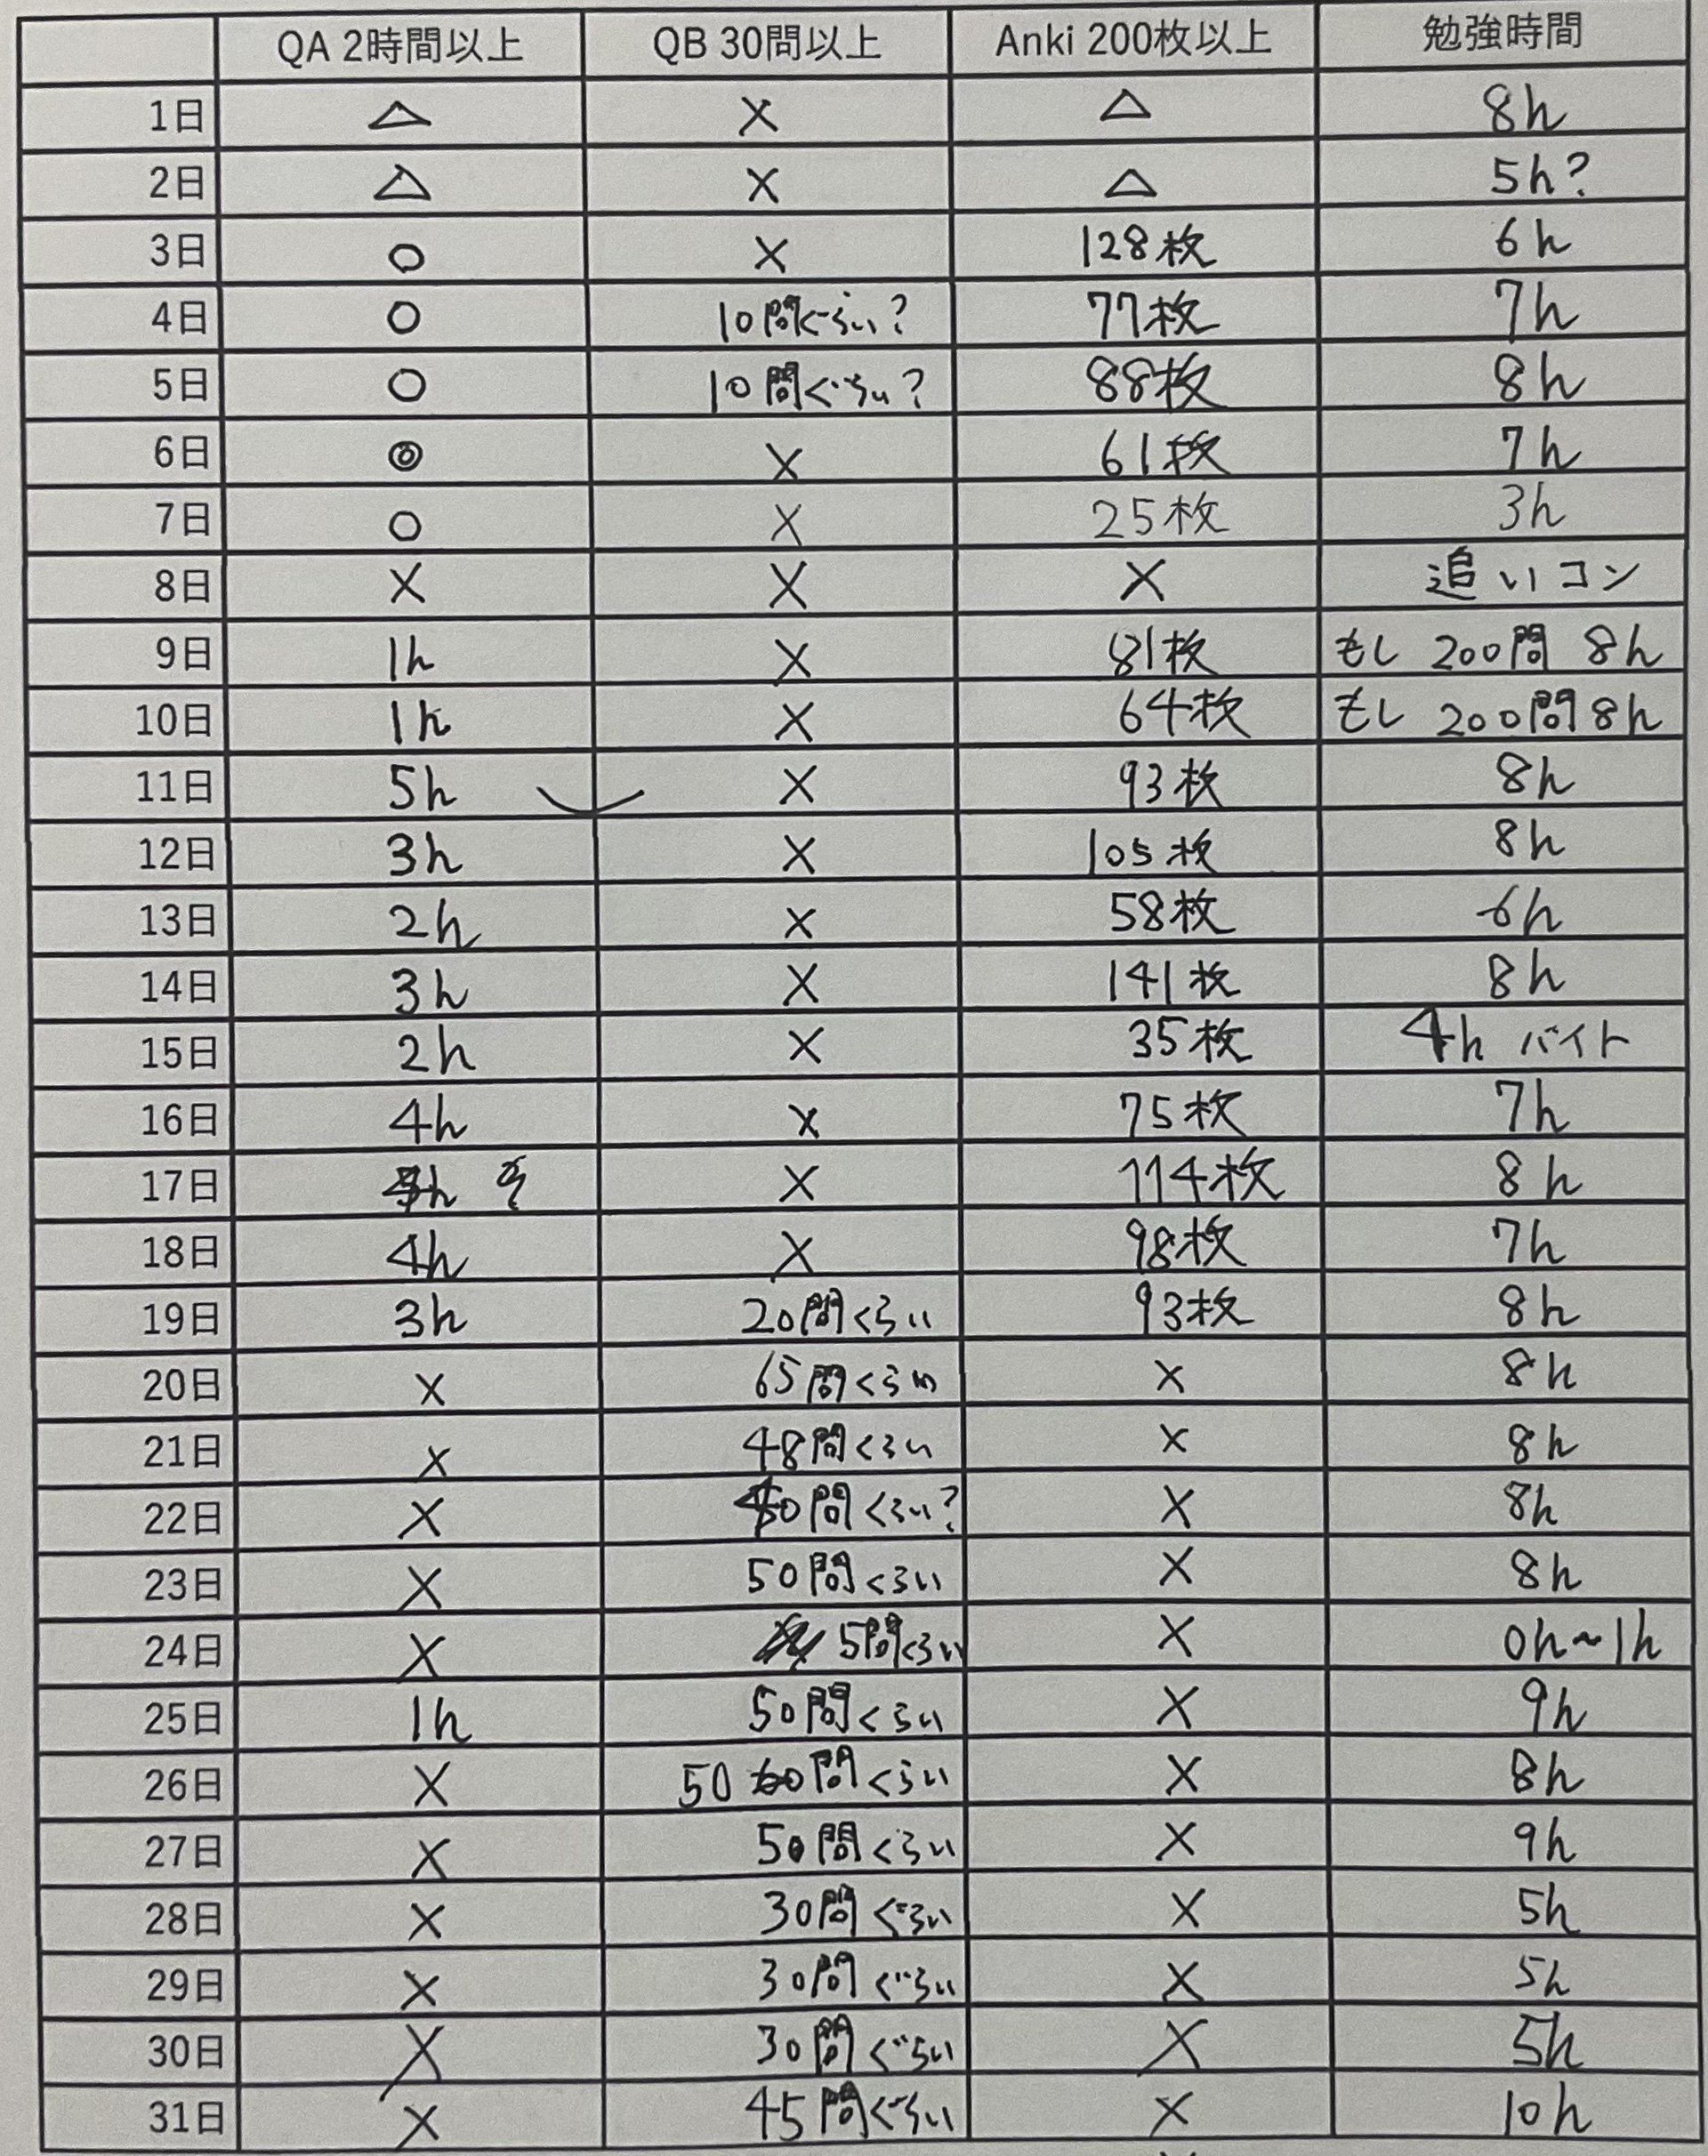 QA 2時間以上 QB 30問以上 Anki 200枚以上 勉強時間
1日 △ × △ 8h
2日 △ × △ 5h?
3日 ○ × 128枚 6h
4日 ○ 10問ぐらい? 77枚 7h
5日 ○ 10問ぐらい? 88枚 8h
6日 ◎ × 61枚 7h
7日 ○ × 25枚 3h
8日 × × × 追いコン
9日 1h × 81枚 もし 200問 8h
10日 1h × 64枚 もし 200問 8h
11日 5h × 93枚 8h
12日 3h × 105枚 8h
13日 2h × 58枚 6h
14日 3h × 141枚 8h
15日 2h × 35枚 4h バイト
16日 4h × 75枚 7h
17日 × 114枚 8h
18日 4h × 98枚 7h
19日 3h 20問くらい 93枚 8h
20日 × 65問くらい × 8h
21日 × 48問くらい × 8h
22日 × 問くらい? × 8h
23日 × 50問くらい × 8h
24日 × 5問くらい × 0h~1h
25日 1h 50問くらい × 9h
26日 × 50 問くらい × 8h
27日 × 50問くらい × 9h
28日 × 30問ぐらい × 5h
29日 × 30問ぐらい × 5h
30日 × 30問ぐらい × 5h
31日 × 45問ぐらい × 10h